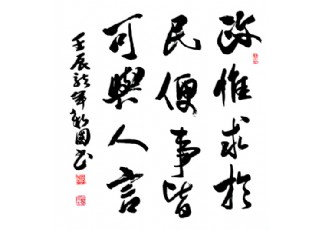 政惟求於
民便事皆
可與人言
壬辰龍年新國书